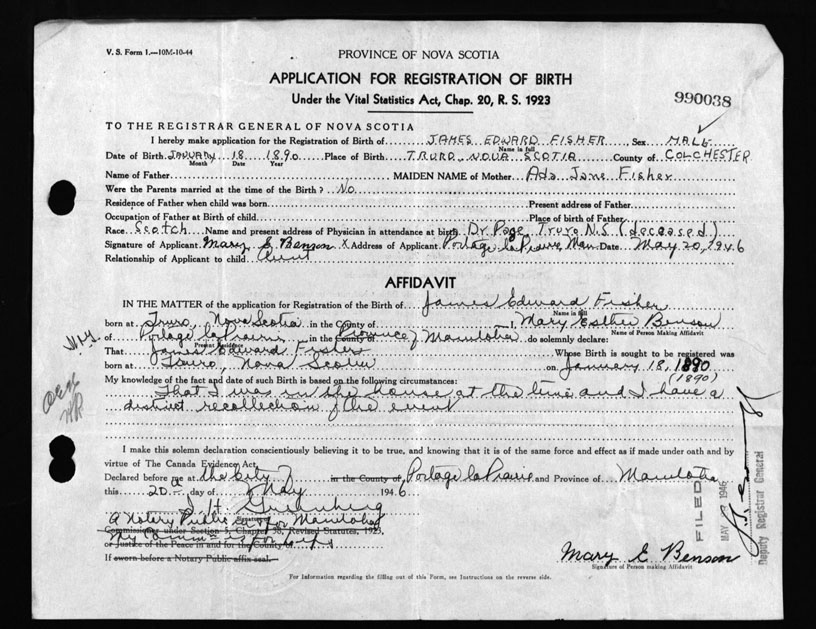 V. S. Form 1.—10M-10-44
PROVINCE OF NOVA SCOTIA
APPLICATION FOR REGISTRATION OF BIRTH
Under the Vital Statistics Act, Chap. 20, R. S. 1923
990038
TO THE REGISTRAR GENERAL OF NOVA SCOTIA
I hereby make application for the Registration of Birth of JAMES EDWARD FISHER, Sex MALE
Name in full
Date of Birth JANUARY 18 1890 Place of Birth TRURO, NOVA SCOTIA County of COLCHESTER
Month Date Year
Name of Father MAIDEN NAME of Mother Ada Jane Fisher
Were the Parents married at the time of the Birth? No
Residence of Father when child was born Present address of Father
Occupation of Father at Birth of child Place of birth of Father
Race Scotch Name and present address of Physician in attendance at birth Dr. Page, Truro N.S. (deceased)
Signature of Applicant Mary E Benson X Address of Applicant Portage la Prairie, Man. Date May 20, 1946
Relationship of Applicant to child Aunt
AFFIDAVIT
IN THE MATTER of the application for Registration of the Birth of James Edward Fisher
Name in full
born at Truro, Nova Scotia in the County of I, Mary Esther Benson
Name of Person Making Affidavit
of Portage la Prairie in the County of Province of Manitoba do solemnly declare:
Present Residence
That James Edward Fisher Whose Birth is sought to be registered was
born at Truro, Nova Scotia on January 18, 1890
(1890)
My knowledge of the fact and date of such Birth is based on the following circumstances:
That I was in the house at the time and I have a
distinct recollection of the event
I make this solemn declaration conscientiously believing it to be true, and knowing that it is of the same force and effect as if made under oath and by
virtue of The Canada Evidence Act.
Declared before me at the City of in the County of, Portage la Prairie and Province of Manitoba
this 20 day of May 1946
A Notary Public in & for Manitoba
Commissioner under Section 5, Chapter 38, Revised Statutes, 1923,
or Justice of the Peace in and for the County of
If sworn before a Notary Public affix seal.
FILED
MAY 1946
Deputy Registrar General
Mary E Benson
Signature of Person making Affidavit
For Information regarding the filling out of this Form, see Instructions on the reverse side.